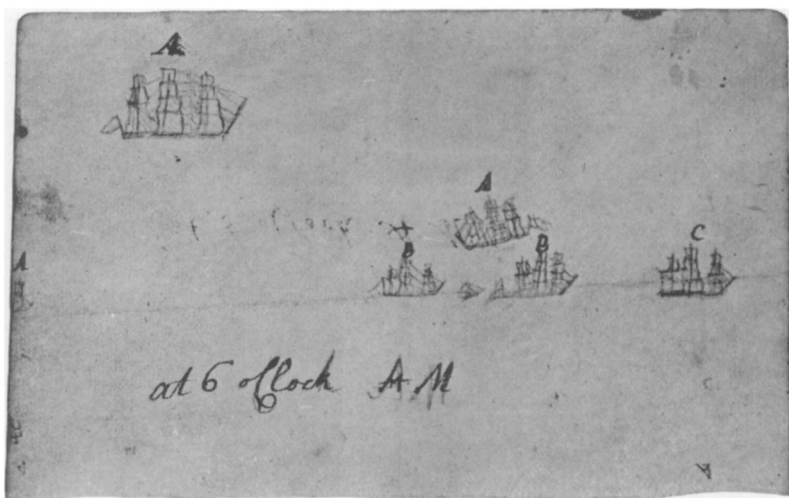 A
A
C
B B
A
at 6 oClock AM